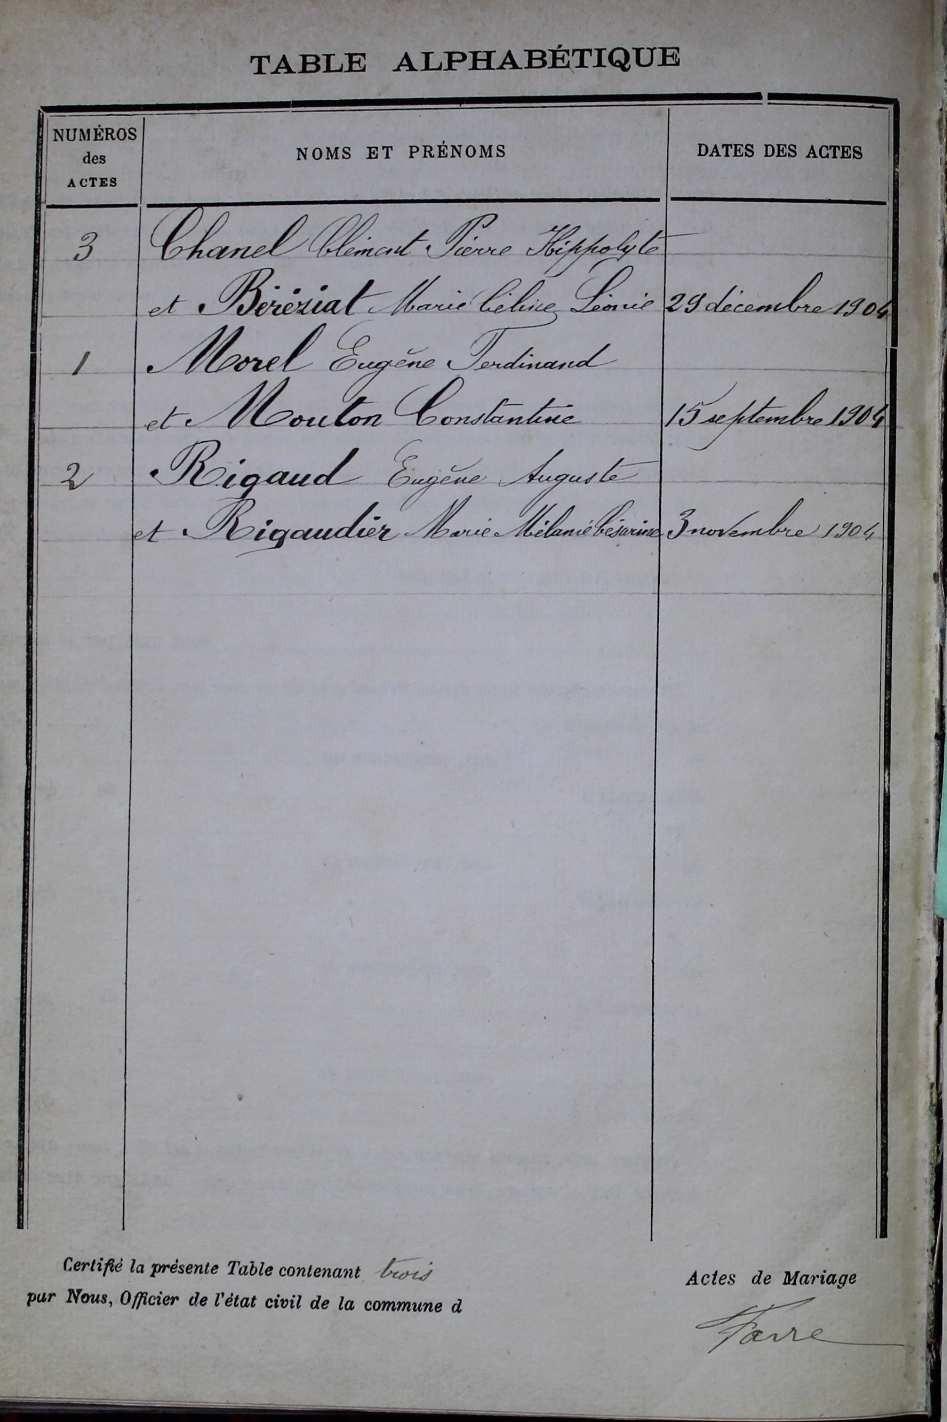 TABLE ALPHABÉTIQUE
NUMÉROS des ACTES
NOMS ET PRÉNOMS
DATES DES ACTES
3 Chanel Clément Pierre Hippolyte
et Béréziat Marie Céline Léonie 29 décembre 1904
1 Morel Eugène Ferdinand
et Mouton Constantine 15 septembre 1904
2 Rigaud Eugène Auguste
et Rigaudier Marie Mélanie Césarine 3 novembre 1904
Certifié la présente Table contenant trois Actes de Mariage
par Nous, Officier de l'état civil de la commune d
Favre